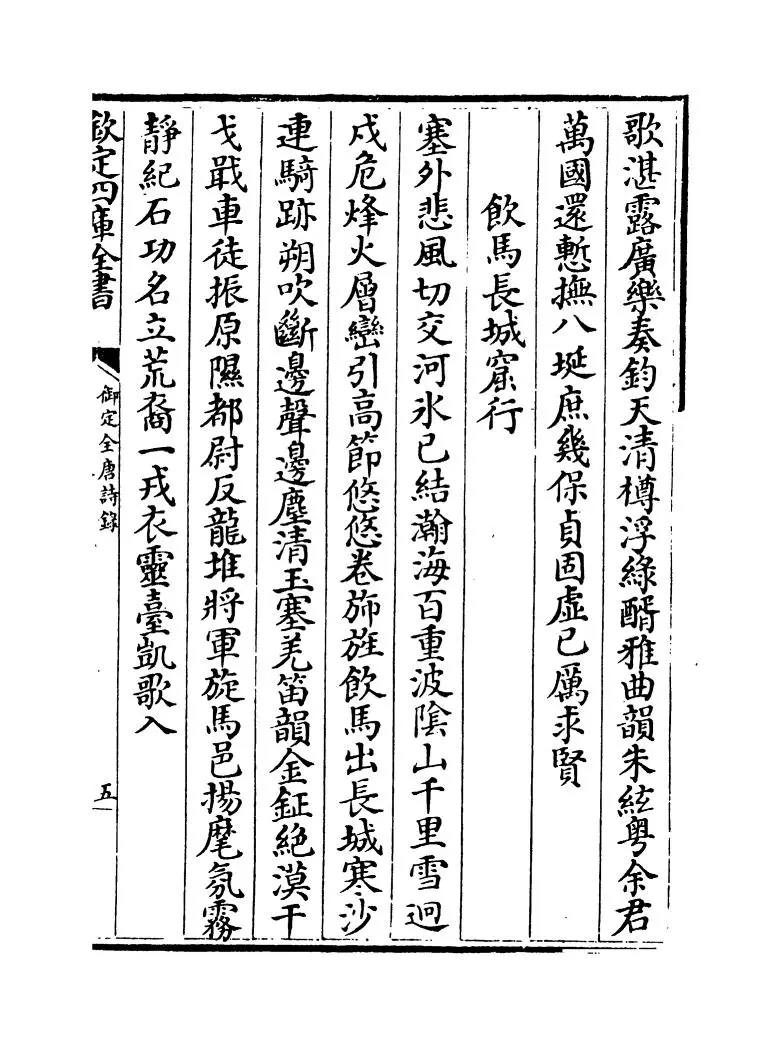 歌湛露廣樂奏鈞天清樽浮綠醑雅曲韻朱絃粵余君
萬國還慙撫八埏庶幾保貞固虛己厲求賢
飲馬長城窟行
塞外悲風切交河氷已結瀚海百重波陰山千里雪迥
戍危烽火層巒引高節悠悠卷斾旌飲馬出長城寒沙
連騎跡朔吹斷邊聲邊塵清玉塞羌笛韻金鉦絶漠干
戈戢車徒振原隰都尉反龍堆將軍旋馬邑揚麾氛霧
靜紀石功名立荒裔一戎衣靈臺凱歌入
欽定四庫全書
御定全唐詩錄
五